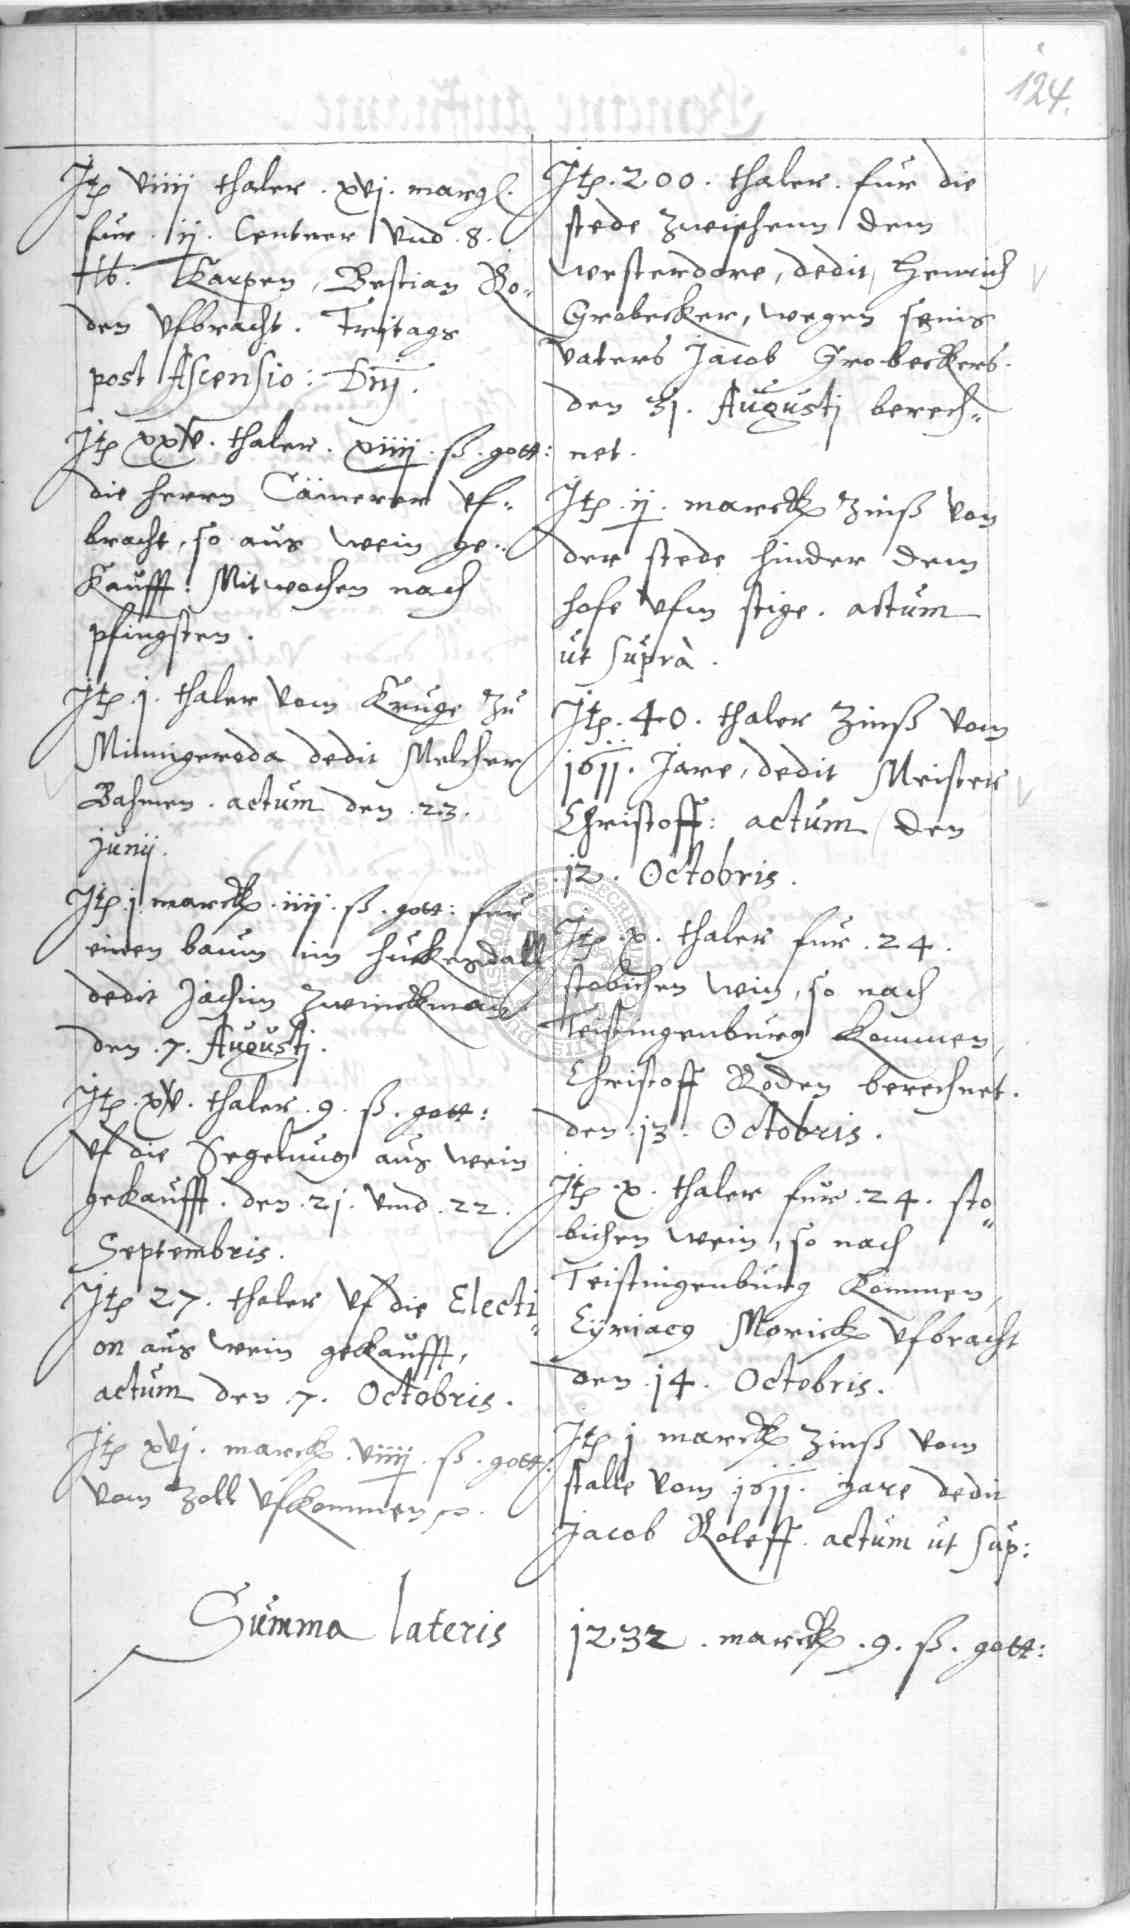 124.
Jtp viiij thaler . xvj. margl.
fur . ij . Centner vnd .8.
lb. Karpen, Bestian Ro-
den vfbracht. Freitags
post Ascensio: Dnj.
Jtp xxv . thaler . xiiij . ß . gott:
die herrn Cämerer vf-
bracht, so aus wein ge-
kaufft. Mitwochen nach
pfingsten.
Jtp .j. thaler vom Kruge zu
Minnigeroda dedit Melcher
Bahmen . actum den .23.
junij.
Jtp .j. marck . iiij . ß . gott: fur
einen baum im huckersdall
dedit Jachim Zwinckman
den .7. Augustj.
Jtp .xv. thaler .9. ß . gott:
vf die Segelung aus wein
gekaufft . den .21. vnd .22.
Septembris.
Jtp 27. thaler vf die Electi-
on aus wein gekaufft,
actum den .7. Octobris.
Jtp xvj . marck . viiij . ß . gott:
vom Zoll vfkommen
Jtp .200. thaler . fur die
stede zwischenn dem
westerdore, dedit Henrich
Grobecker, wegen seins
vaters Jacob Grobeckers.
den 31. Augustj berech-
net.
Jtp . ij . marck Zinß von
der stede hinder dem
hofe vfm stige . actum
ut suprà.
Jtp .40. thaler Zinß vom
1611. Jare, dedit Meister
Christoff: actum den
.12. Octobris.
Jtp .x. thaler fur .24.
stobichen win, so nach
Teistungenburg kommen,
Christoff Roden berechnet.
den .13. Octobris.
Jtp .x. thaler fur .24. sto-
bichen wein, so nach
Teistingenburg kommen,
Cyriacg Morick vfbracht
den .14. Octobris.
Jtp j marck Zinß vom
stalle vom 1611. jare dedit
Jacob Roleff . actum ut sup:
Summa lateris 1232 . marck .9. ß . gott: